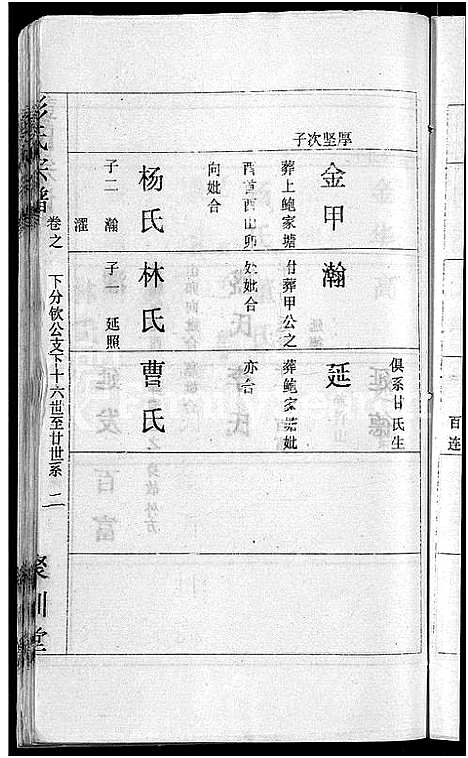 厚坚次子
金甲
葬上鲍家塘
酉首酉山卯
向妣合
杨氏
子二 瀚
濯
瀚
附葬甲公之
处妣合
林氏
子一 延照
延
葬鲍家塘妣
亦合
曹氏
俱系甘氏生
百连
彭氏宗谱
卷之
下分钦公支下十六世至廿世系 二
堂